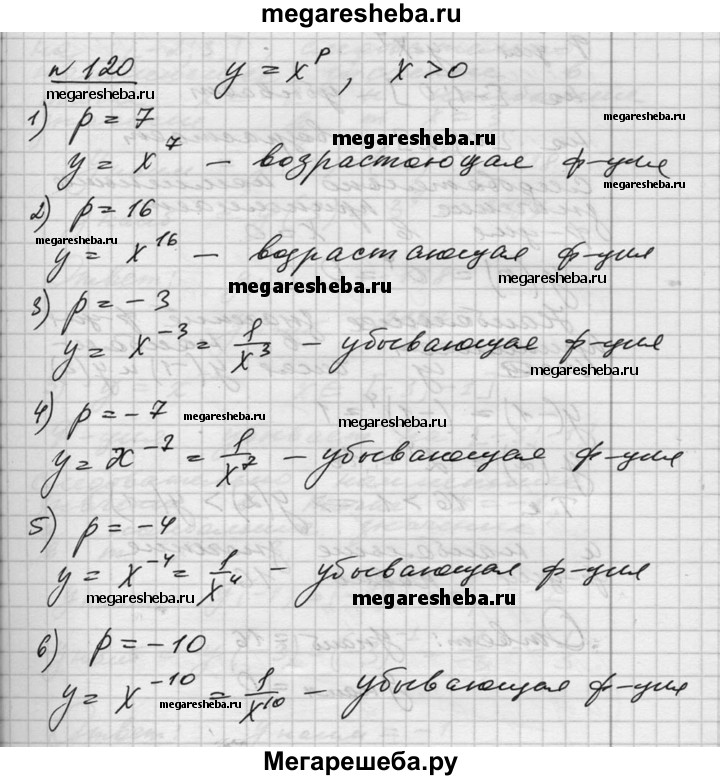 megaresheba.ru
№ 120 y = x^p, x > 0
megaresheba.ru
1) p = 7
megaresheba.ru
megaresheba.ru
y = x^7 – возрастающая ф-ция
megaresheba.ru
2) p = 16
megaresheba.ru
y = x^16 – возрастающая ф-ция
megaresheba.ru
megaresheba.ru
3) p = – 3
y = x^–3 = 1/x^3 – убывающая ф-ция
megaresheba.ru
4) p = – 7
megaresheba.ru
megaresheba.ru
y = x^–7 = 1/x^7 – убывающая ф-ция
5) p = – 4
y = x^–4 = 1/x^4 – убывающая ф-ция
megaresheba.ru
megaresheba.ru
6) p = – 10
y = x^–10 = 1/x^10 – убывающая ф-ция
megaresheba.ru
megaresheba.ru
Мегарешеба.ру